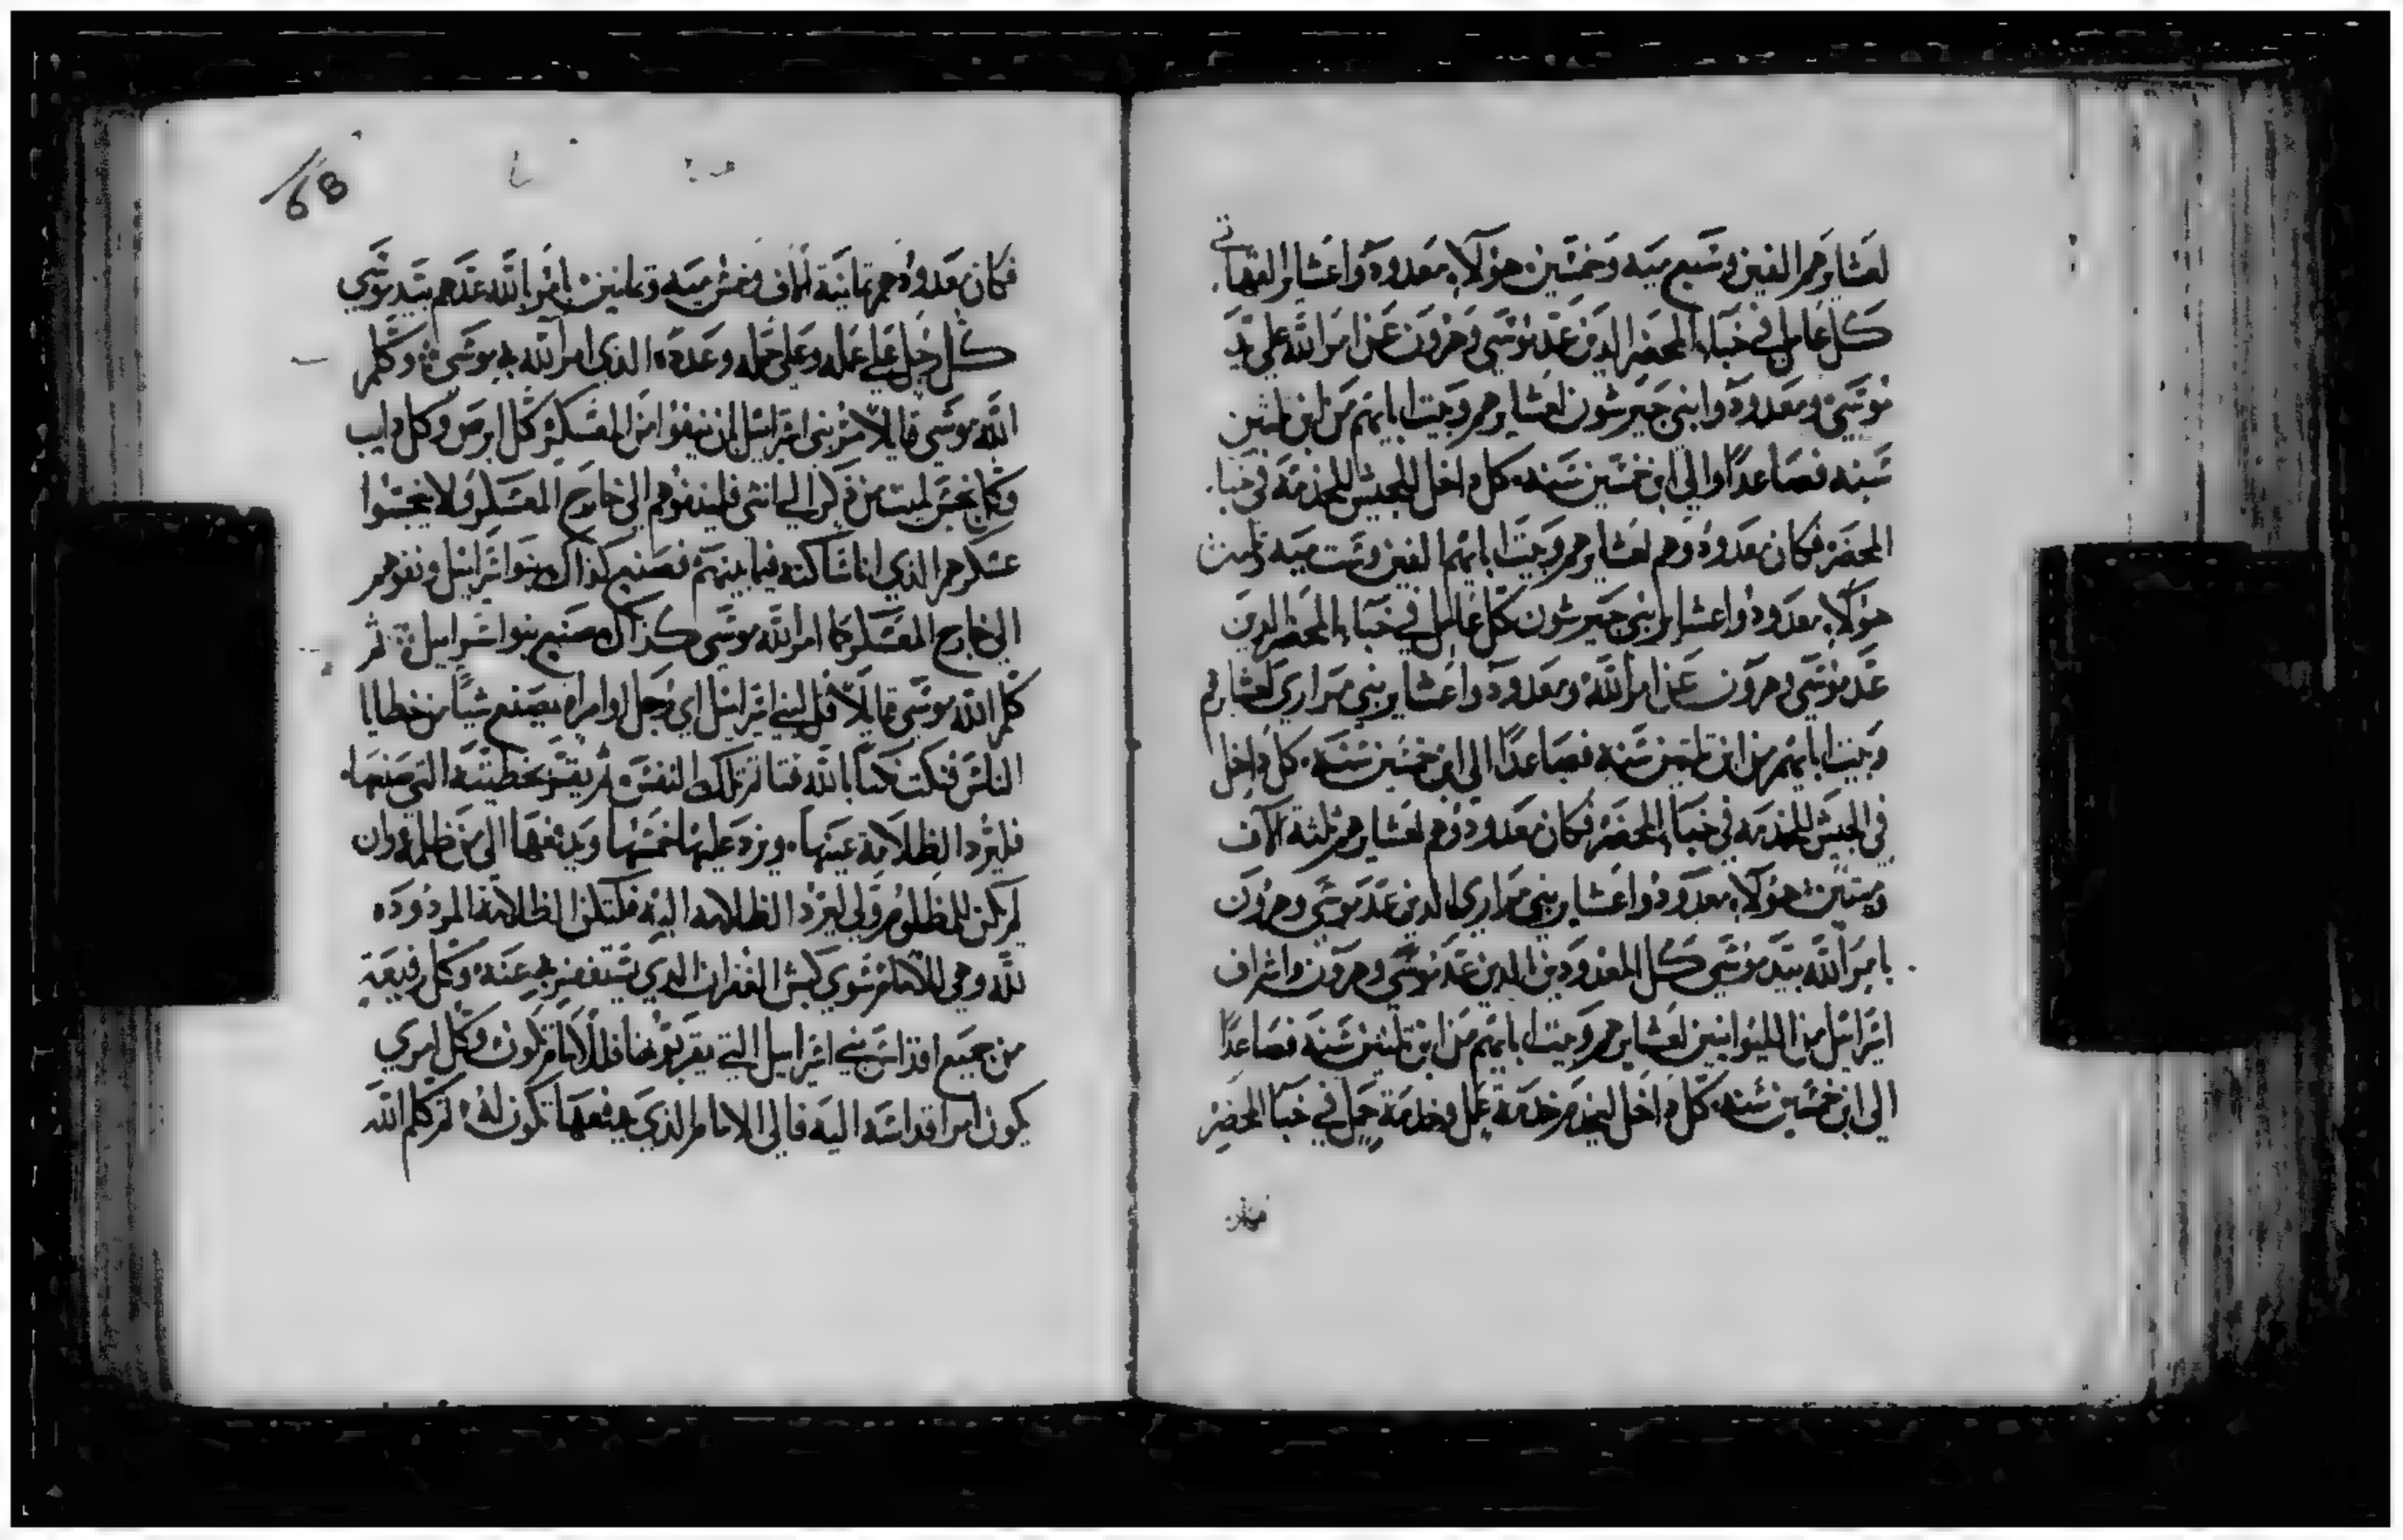 لعشايرهم الفين وسبع ميه وخمسين هولاء معدودو اعشاير القهاتي
كل عامل في خباء المحضر الدين عد موسي وهرون عن امر الله علي يد
موسي ومعدودو ابني جيرشون لعشايرهم وبيت ابايهم من ابن ثلثين
سنه فصاعدا والي ابن خمسين سنه كل داخل للجيش للخدمة في خبا
المحضر فكان معدودوهم لعشايرهم وبيت ابايهم الفين وست ميه وثلثين
هولاء معدودو اعشاير بني جيرشون كل عامل في خباء المحضر الدين
عد موسي وهرون عن امر الله ومعدودو اعشاير بني مراري لعشايرهم
وبيت ابايهم من ابن ثلثين سنه فصاعدا الي ابن خمسين سنه كل داخل
في الجيش للخدمه في خباء المحضر فكان معدودوهم لعشايرهم ثلثة الاف
وميتين هولاء معدودو اعشاير بني مراري الدين عد موسي وهرون
بامر الله بيد موسي كل المعدودين الدين عد موسي وهرون واشراف
اسرائيل من الليوانيين لعشايرهم وبيت ابايهم من ابن ثلثين سنه فصاعدا
الي ابن خمسين سنه كل داخل ليخدم خدمة عمل وخدمة حمل في خبا المحضر
فكان
68
فكان معدودهم ثمانية الاف وخمس ميه وثمانين بامر الله عدهم بيد موسي
كل رجل علي عمله وعلي حمله وعدده الذي امر الله به موسي وكلم
الله موسي قايلا مر بني اسرائيل ان ينفوا من المعسكر كل ابرص وكل دايب
وكل نجس لميت من ذكر الي انثي فلينفوهم الي خارج المعسكر ولا ينجسوا
عسكرهم الذي انا ساكنه فيما بينهم فصنع كذاك بنو اسرائيل ونفوهم
الي خارج المعسكر كما امر الله موسي كذاك صنع بنو اسراييل ثم
كلم الله موسي قايلا قل لبني اسرائيل اي رجل او امراه يصنع شيا من خطايا
الناس فنكث نكثا بالله فتاثم تلك النفس ثم يقر بخطيته التي صنعها
فليرد الظلامة عينها ويزد عليها خمسها ويدفعها الي من ظلمه وان
لم يكن للمظلوم ولي ليرد الظلامه اليه فلتكن الظلامة المردوده
لله وهي للامام سوي كبش الغفران الدي يستغفر به عنه وكل رفيعة
من جميع اقداس بني اسراييل التي يقربونها فللامام تكون وكل امري
يكون امر اقداسه اليه فالي الامام الذي يدفعها تكون له ثم كلم الله